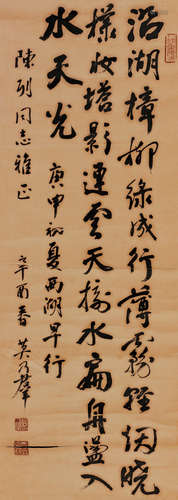 沿湖樟柳绿成行薄雾轻烟晓
样妆塔影连云天接水扁舟荡入
水天光
庚申初夏西湖早行
陈列同志雅正
辛酉春 莫乃群